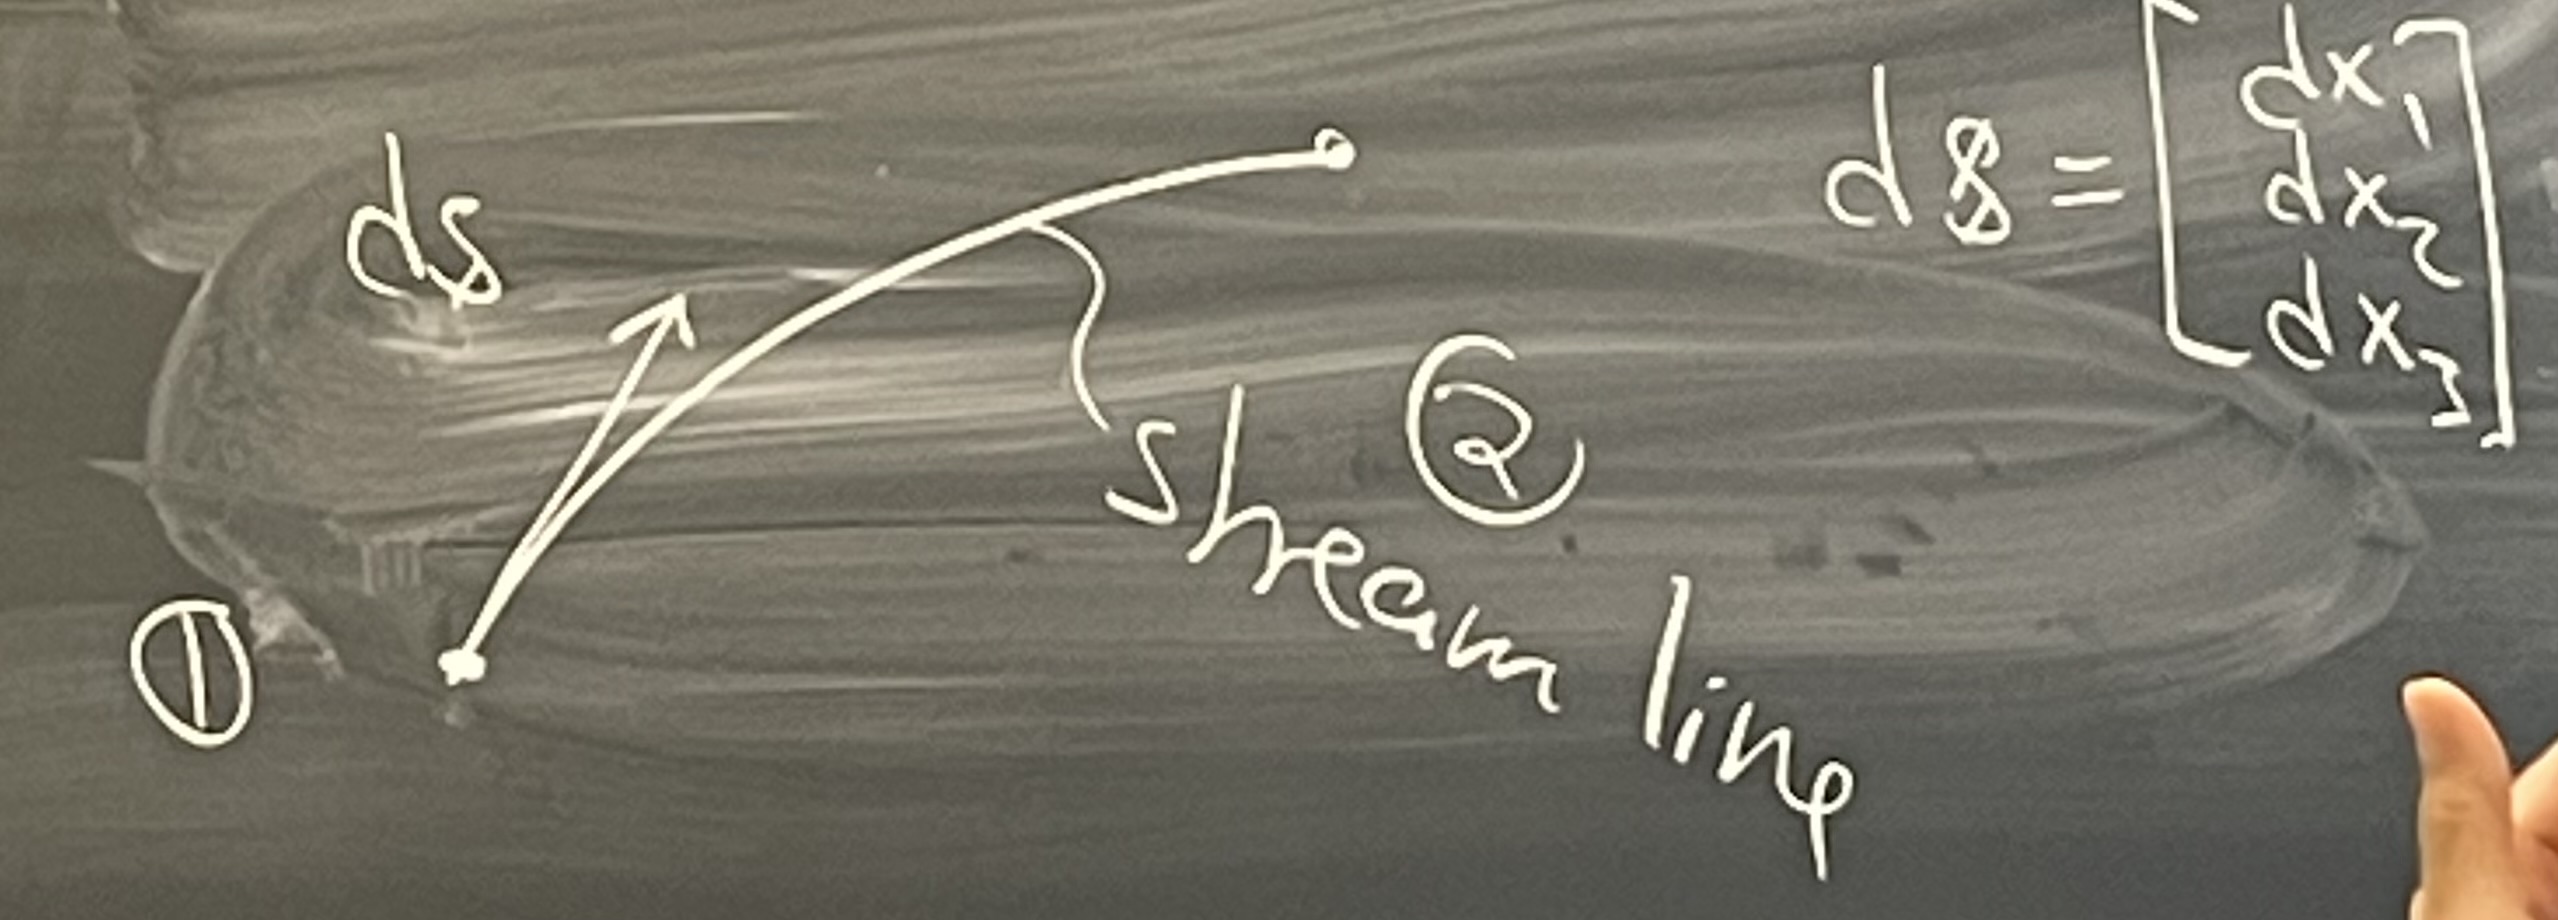 ds
ds = [dx₁
dx₂
dx₃]
②
stream line
①